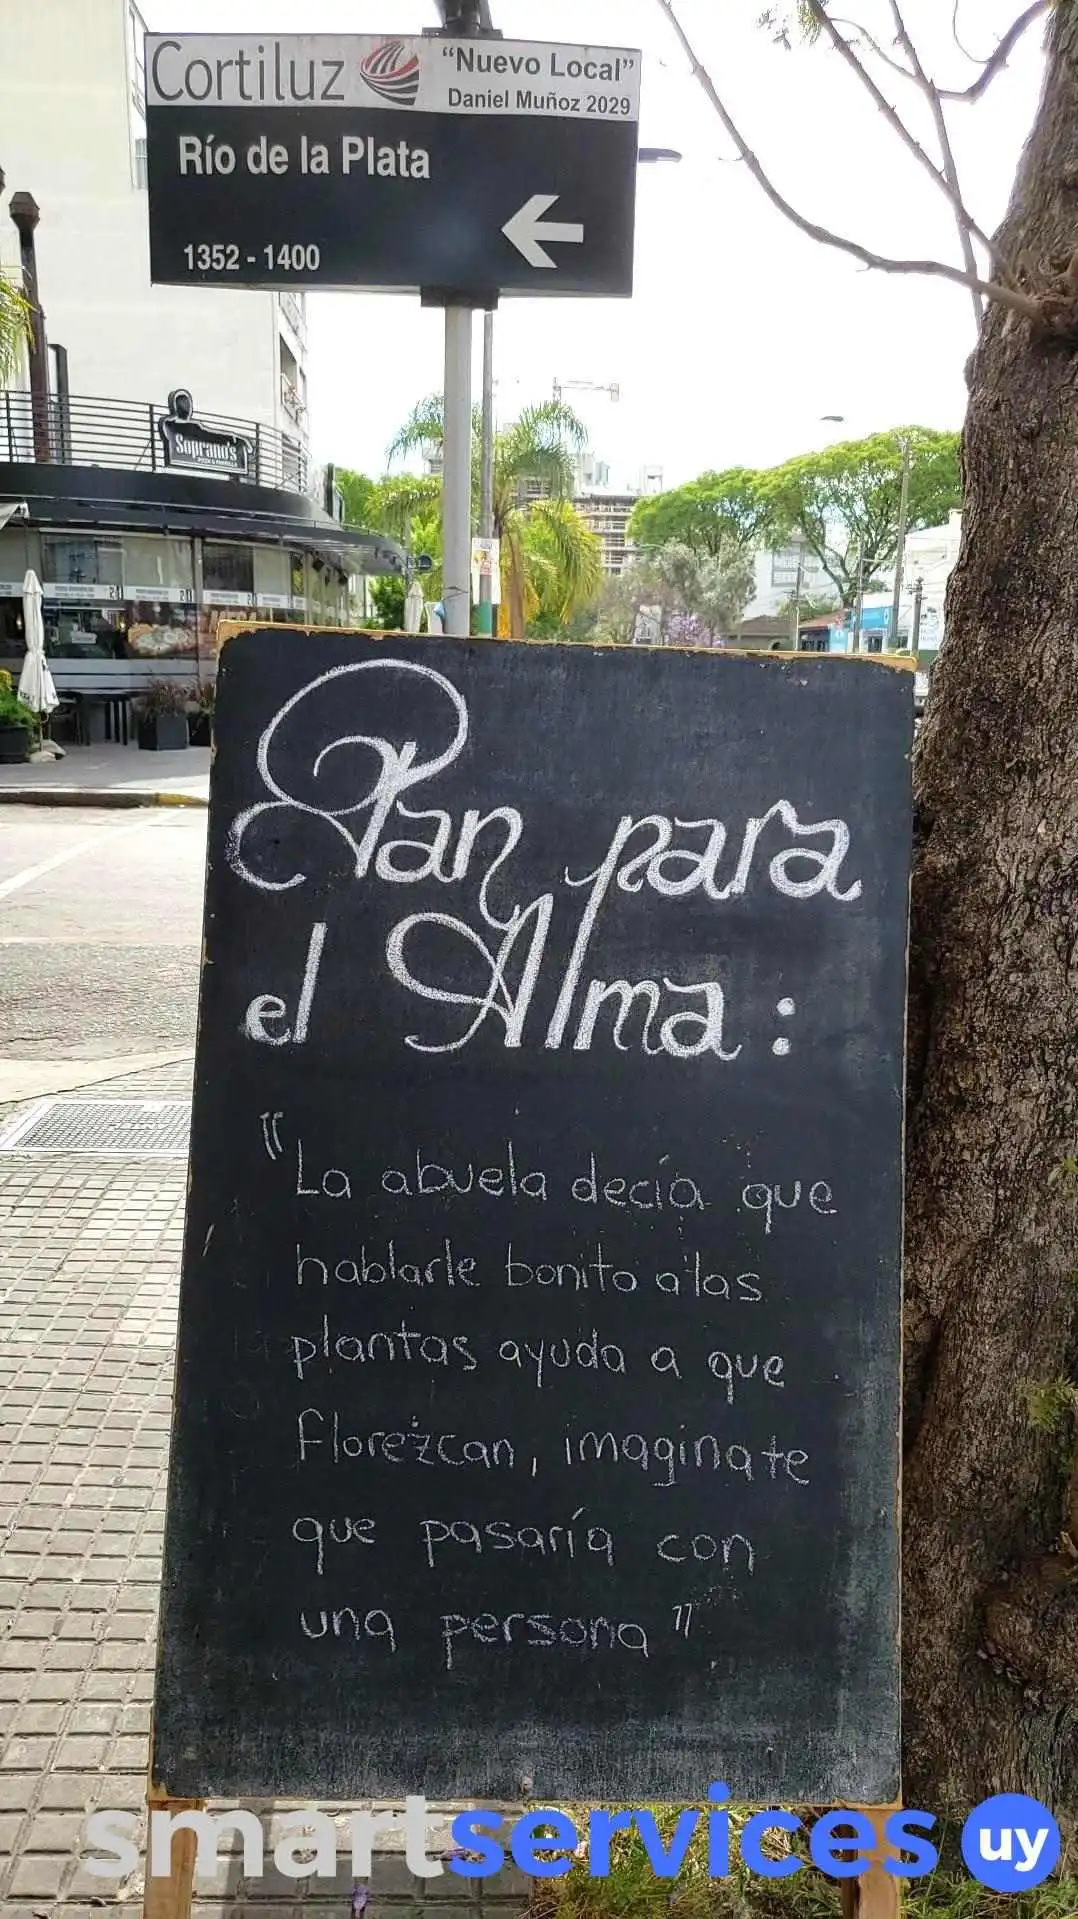 Cortiluz
"Nuevo Local"
Daniel Muñoz 2029
Río de la Plata
1352 - 1400
Soprano's
Plan para
el Alma:
"La abuela decía que
hablarle bonito a las
plantas ayuda a que
florezcan, imaginate
que pasaría con
una persona"
smartservices uy